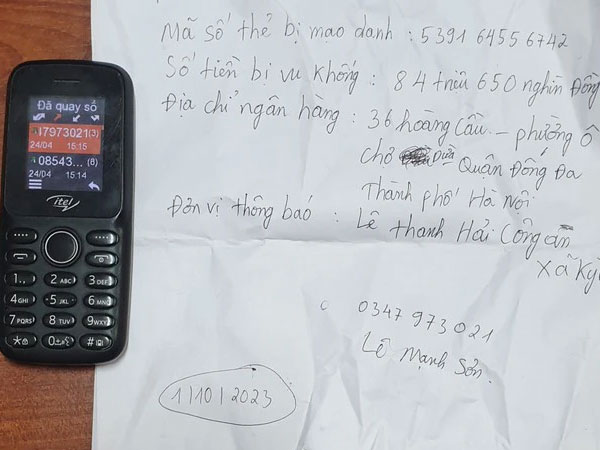 Đã quay số
17973021(3)
24/04 15:15
08543... (8)
24/04 15:14
itel
1
2 ABC
3 DEF
4 GHI
5 JKL
6 MNO
7 PQRS
8 TUV
9 WXYZ
0
#
Mã số thẻ bị mạo danh : 5391 6455 6742
Số tiền bị vu khống : 84 triệu 650 nghìn Đồng
Địa chỉ ngân hàng : 36 hoàng Cầu - phường Ô
chợ Dừa Quận Đống Đa
Thành phố Hà Nội
Đơn vị thông báo : Lê thanh Hải Công an
xã Kỳ
0347 973 021
Lê Mạnh Sơn.
1/10/2023